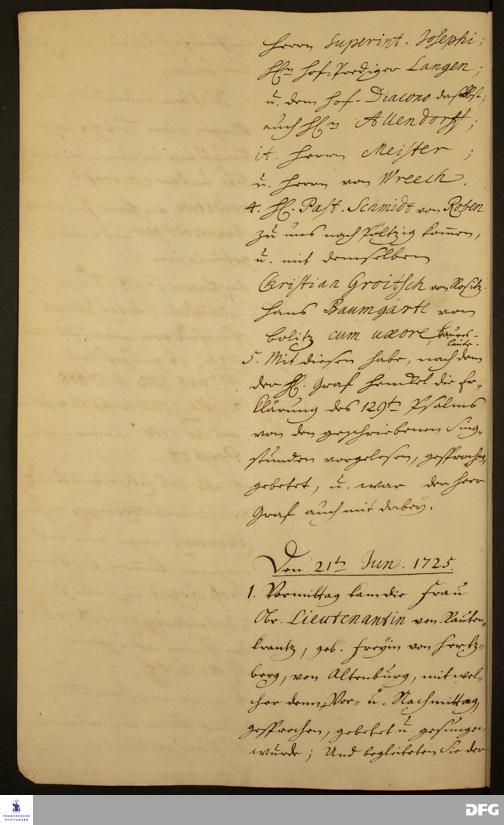 Herrn Superint. Josephi;
HEn Hof-Prediger Langen;
u. dem Hof-Diacono daselbst;
auch HEn Allendorff;
it. Herrn Meister;
u. Herrn von Wreech.
4. H. Past. Schmidt von Roben
zu uns nach Pöltzig kommen,
u. mit demselben
Christian Groitsch von Rositz.
Hans Baumgärtl von
bolitz cum uxore, Bauers-
leute.
5. Mit diesen habe, nach dem
der H. Graf Henckel die Er-
klärung des 129ten Psalms
von den geschriebenen Sing-
stunden vorgelesen, gesprochen,
gebetet, u. war der Herr
Graf auch mit dabey.
Den 21ten Jun. 1725.
1. Vormittag kam die Frau
Obr. Lieutenantin von Rauten-
krantz, geb. Freyin von Hertz-
berg, von Altenburg, mit wel-
cher denn Vor- u. Nachmittag
gesprochen, gebetet u. gesungen
wurde; Und begleiteten Sie der
FRANCKESCHE
STIFTUNGEN
DFG